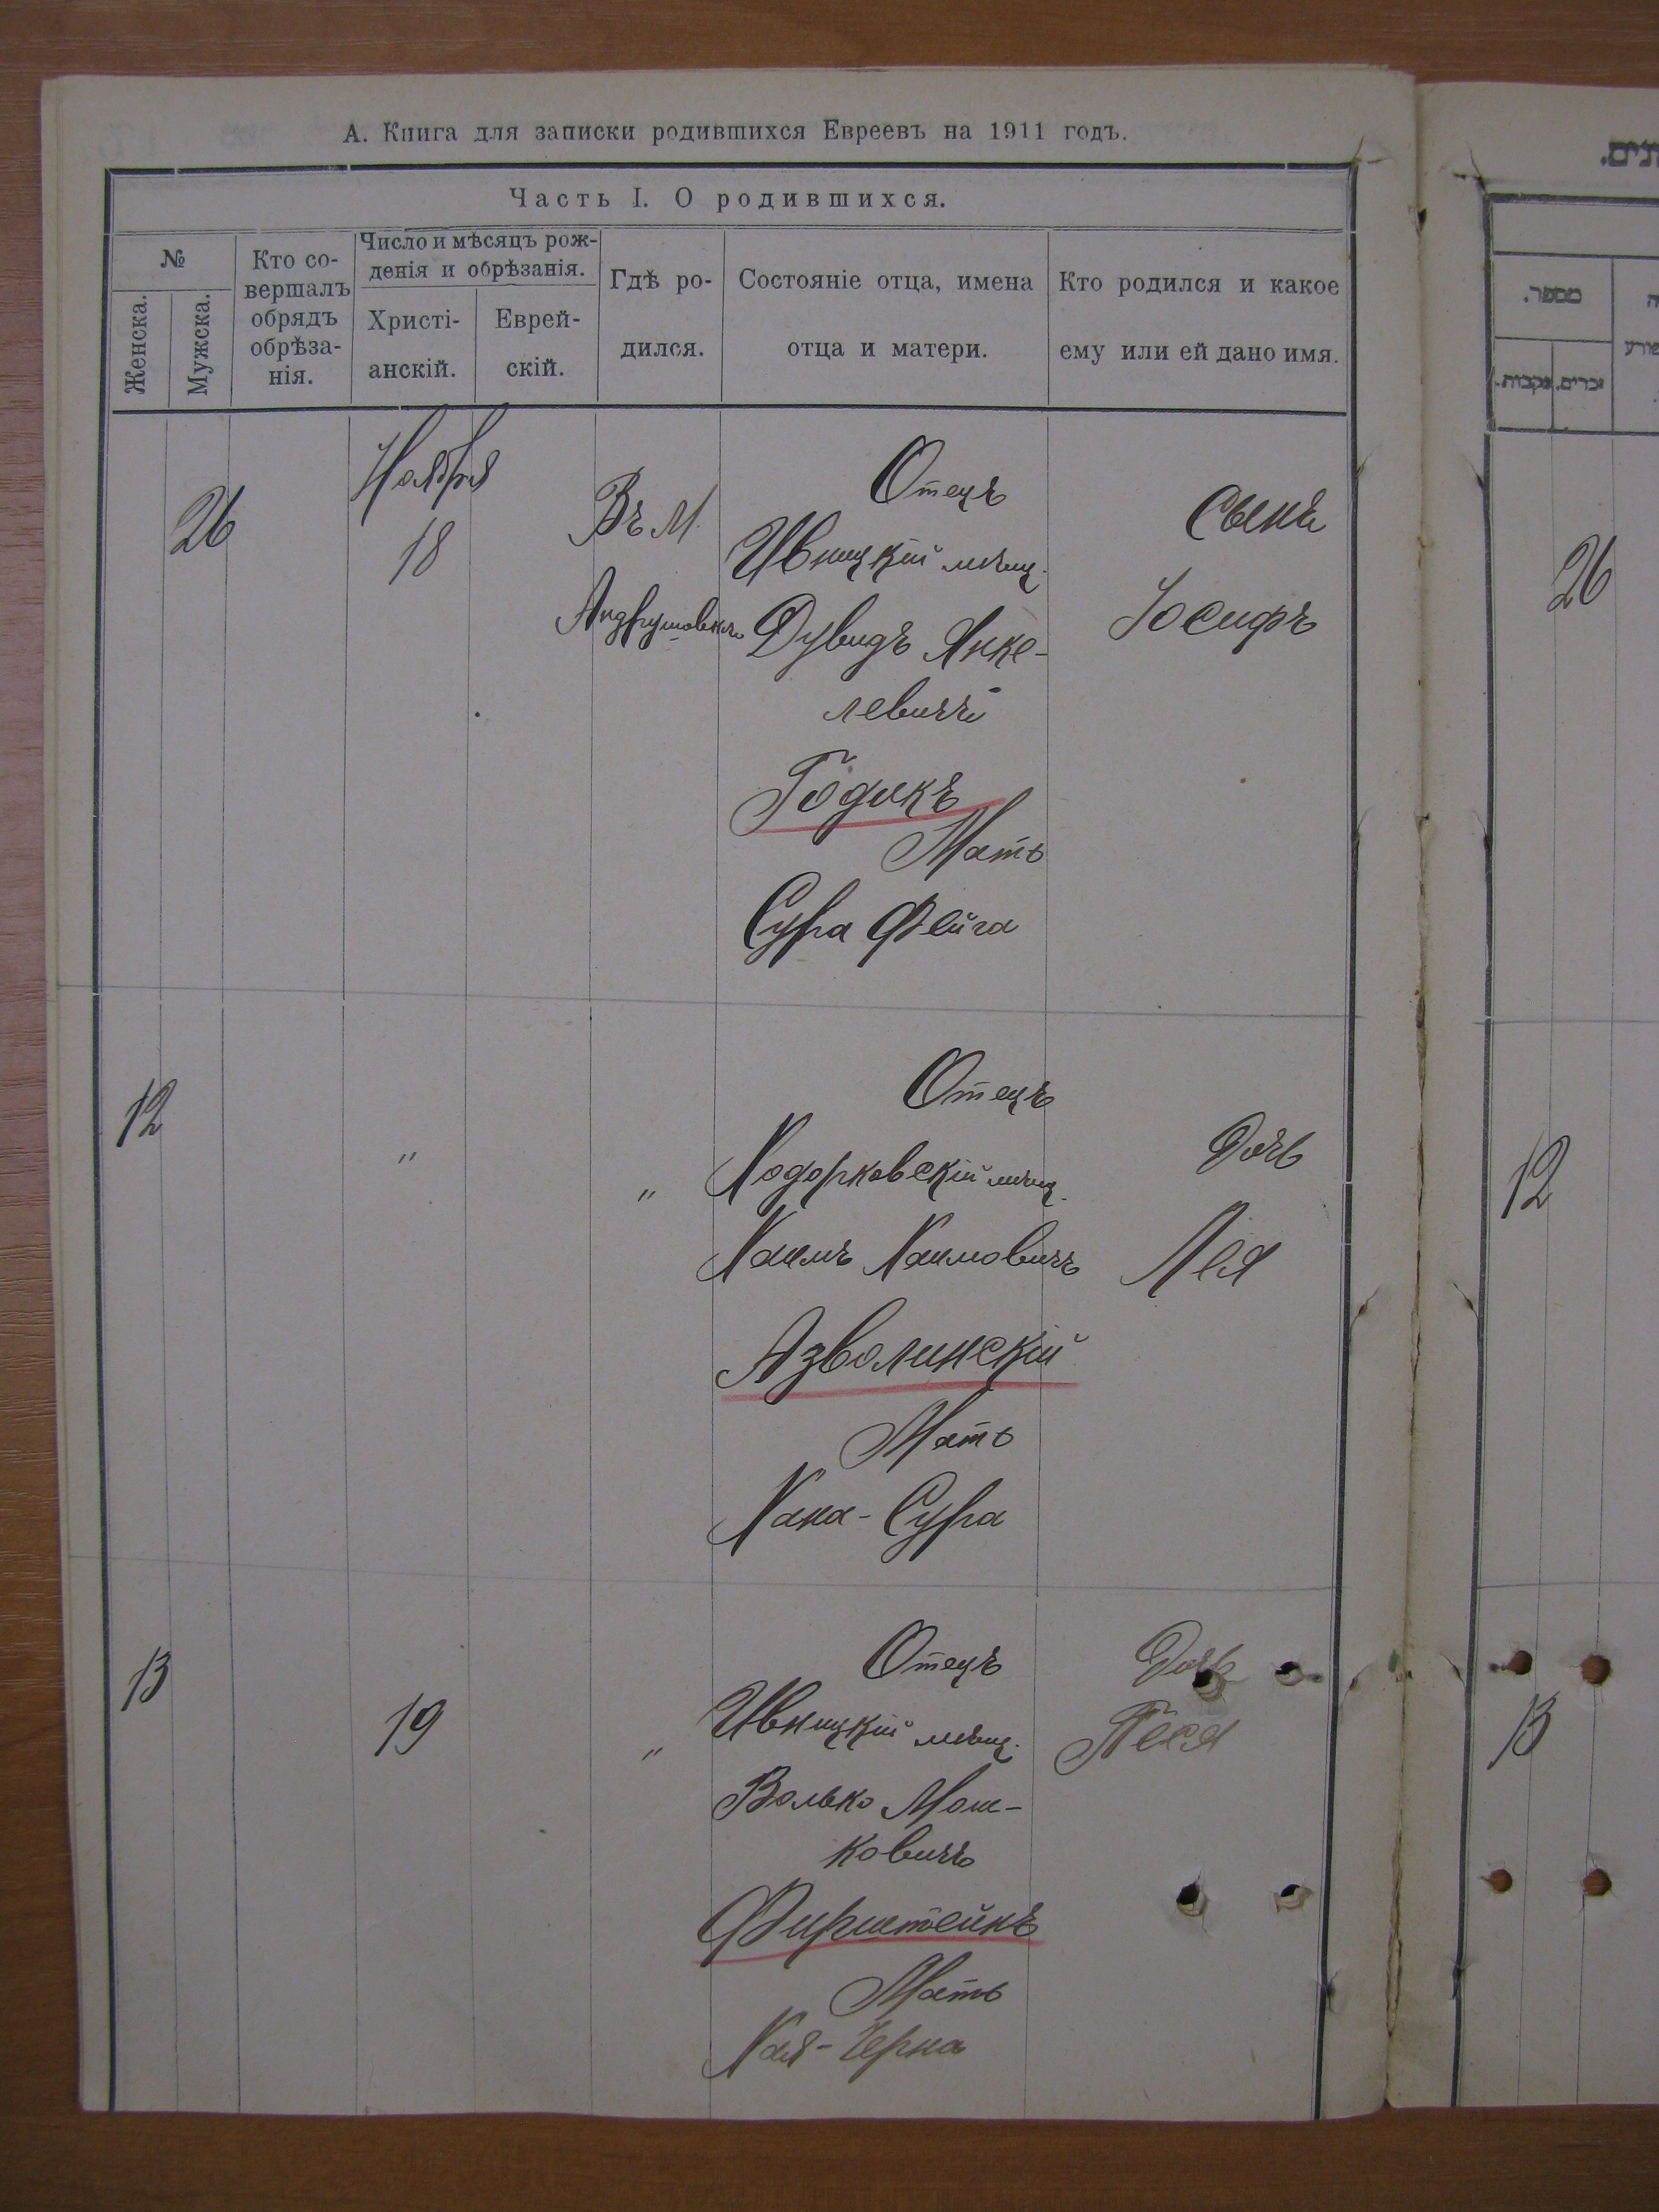 А. Книга для записки родившихся Евреевъ на 1911 годъ.
Часть I. О родившихся.
№
Женска.
Мужска.
Кто со-
вершалъ
обрядъ
обрѣза-
нія.
Число и мѣсяцъ рож-
денія и обрѣзанія.
Христі-
анскій.
Еврей-
скій.
Гдѣ ро-
дился.
Состояніе отца, имена
отца и матери.
Кто родился и какое
ему или ей дано имя.
26
Ноября
18
Въ М.
Андрушовкѣ
Отецъ
Ивницкій мѣщ.
Дувидъ Янке-
левичъ
Годикъ
Мать
Сура Фейга
Сынъ
Іосифъ
12
"
"
Отецъ
Ходорковскій мѣщ.
Хаимъ Хаимовичъ
Азволинскій
Мать
Хана-Сура
Дочь
Лея
13
19
"
Отецъ
Ивницкій мѣщ.
Волько Мош-
ковичъ
Фирштейнъ
Мать
Хая-Черна
Дочь
Песя
מספר.
זכרים.
נקבות.
26
12
13